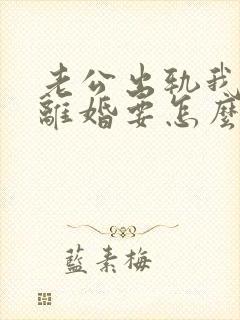 老公出轨我
離婚要怎麼
藍素梅